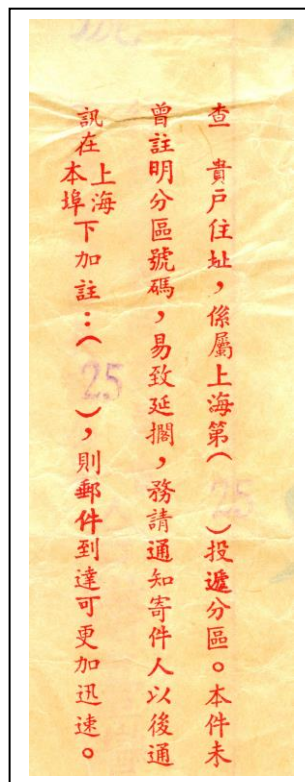 查　貴戶住址，係屬上海第（25）投遞分區。本件未
曾註明分區號碼，易致延擱，務請通知寄件人以後通
訊在上海本埠下加註：（25），則郵件到達可更加迅速。